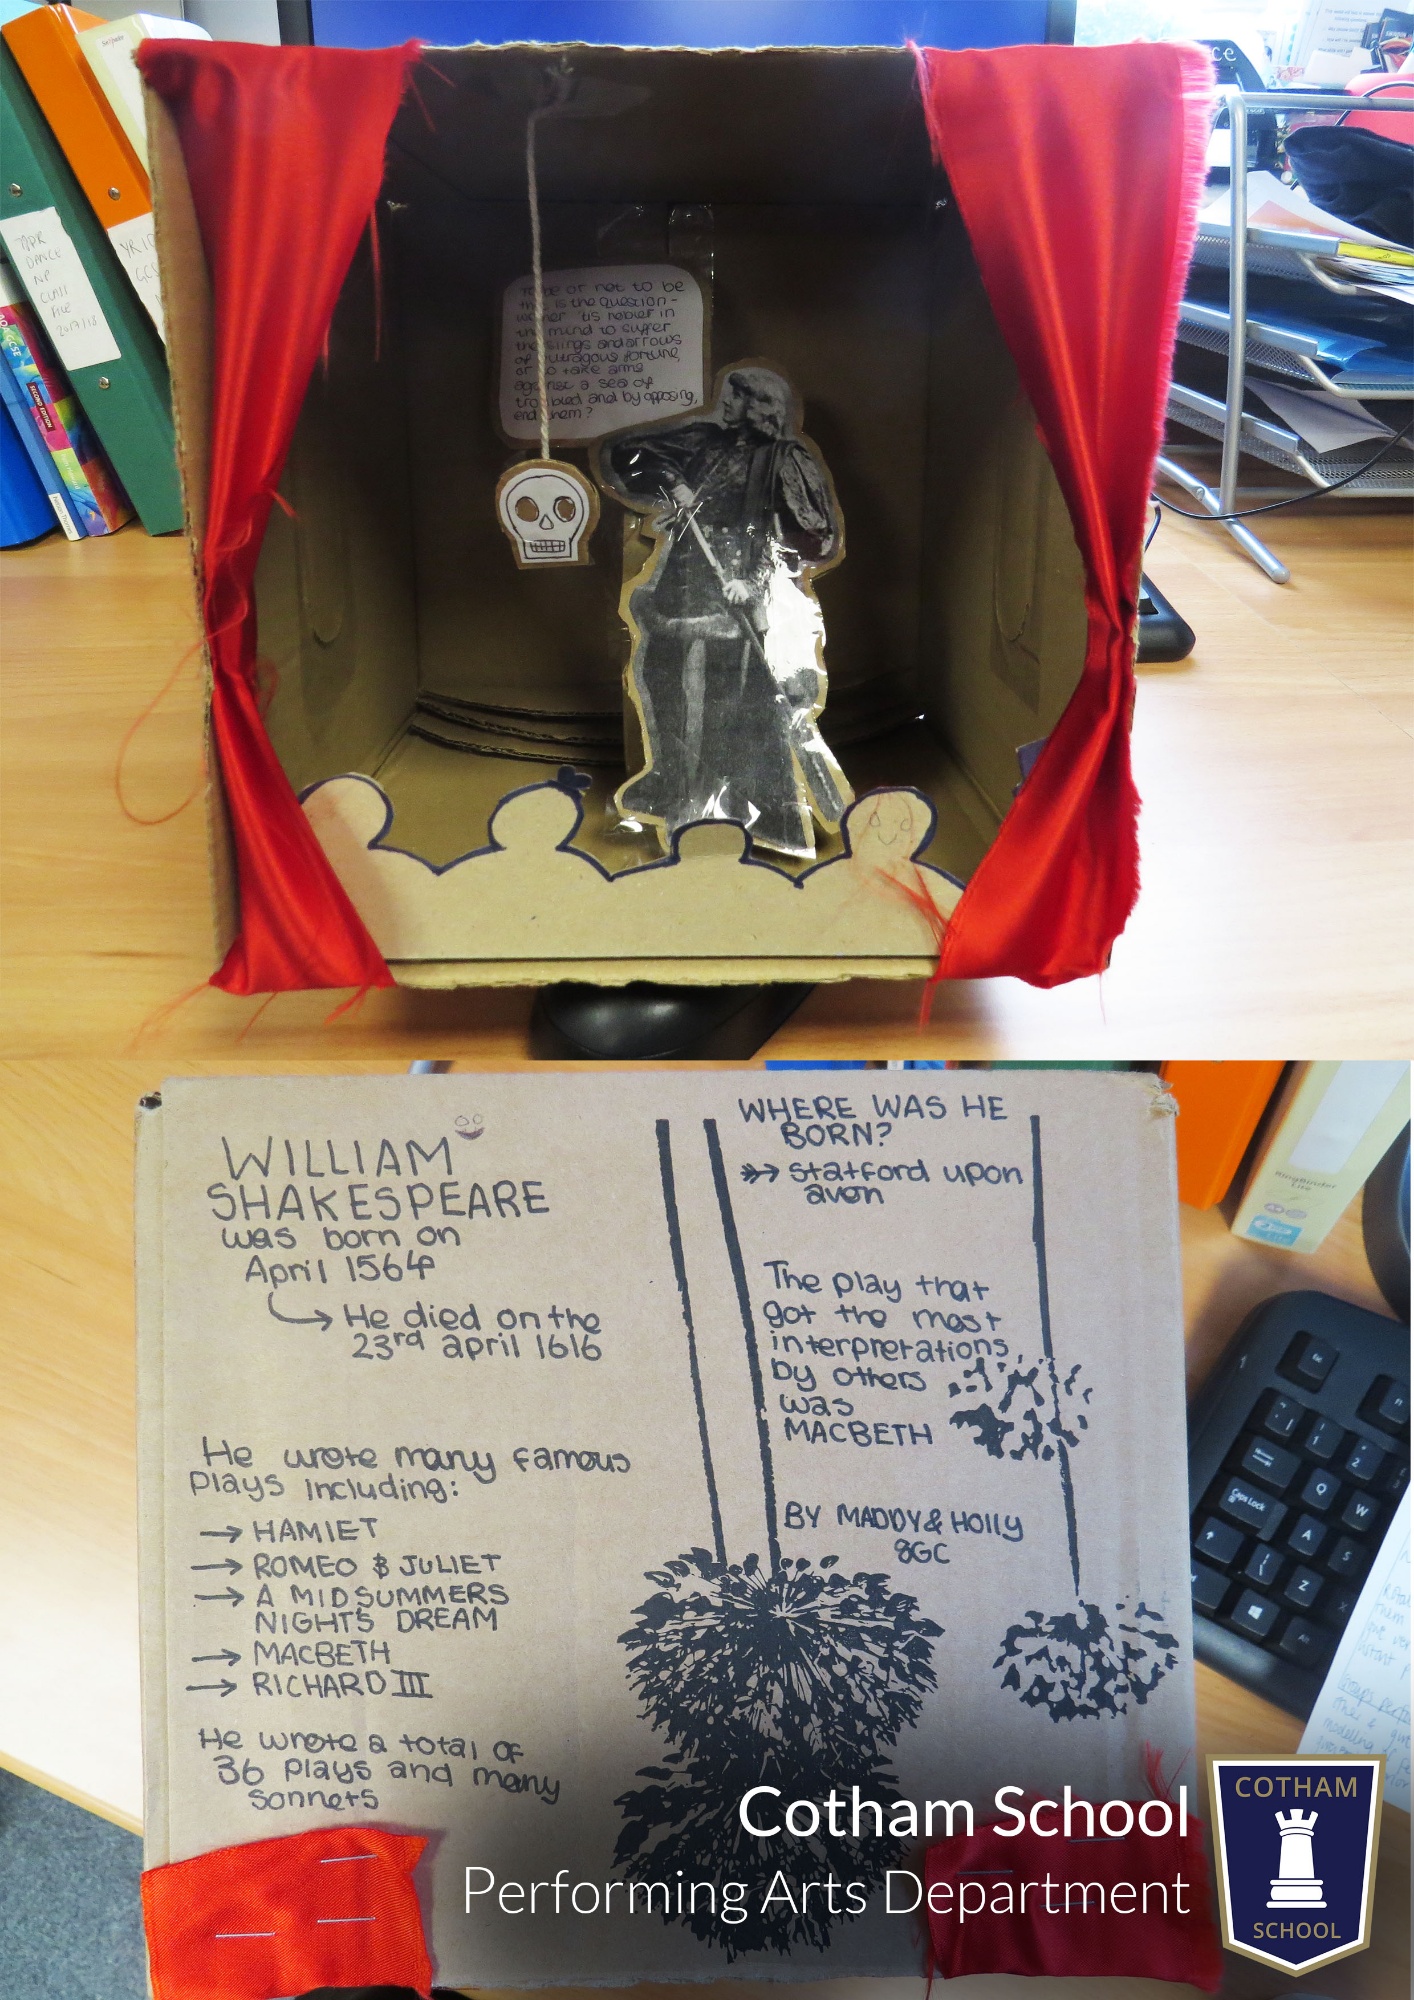 ce
DANCE
NP
CLASS
FILE
2017/18
GCSE
SECOND EDITION
To be or not to be
this is the question -
us nobler in
the mind to suffer
the slings and arrows
of outragous fortune,
or to take arms
against a sea of
troubled and by opposing,
end them?
WILLIAM
SHAKESPEARE
was born on
April 1564
He died on the
23rd april 1616
He wrote many famous
plays including:
→ HAMLET
→ ROMEO & JULIET
→ A MIDSUMMERS
NIGHT'S DREAM
→ MACBETH
→ RICHARD III
He wrote a total of
36 plays and many
sonnets
WHERE WAS HE
BORN?
statford upon
avon
The play that
got the most
interpretations
by others
was
MACBETH
BY MADDY & HOLLY
8GC
RingBinder
Lite
Esc
Caps Lock
Q
W
A
S
Z
Cotham School
Performing Arts Department
COTHAM
SCHOOL